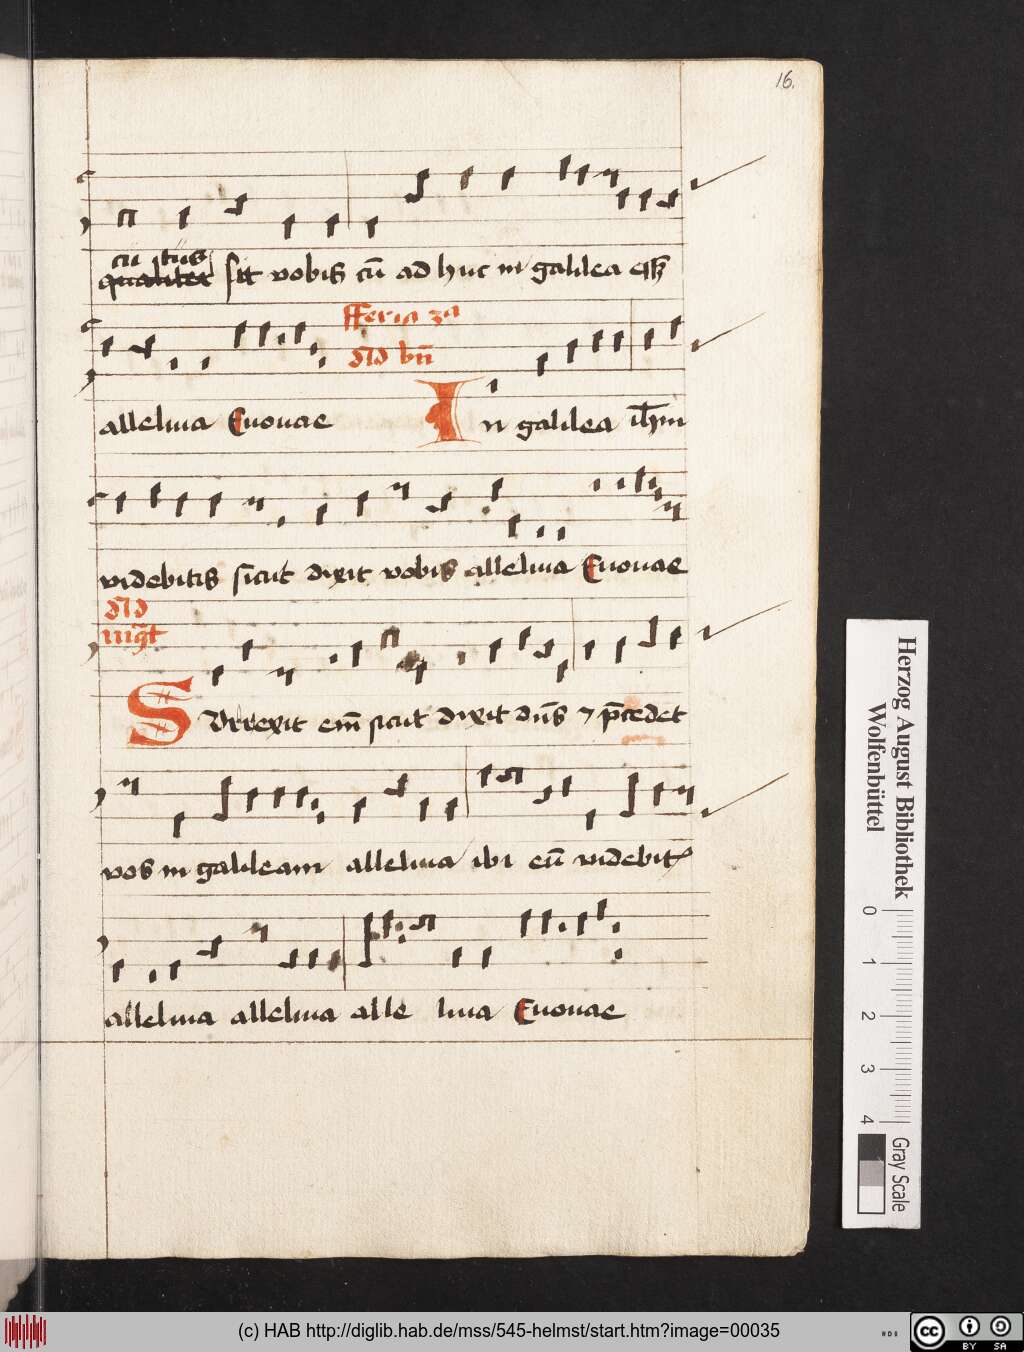 16.
cū ıtiis
qualiter sit vobis cū ad huc in galilea essꝫ
fferia 3a
alleluia Euouae ad bn̄ In galilea ihm̄
videbitis sicut dixit vobis alleluia Euouae
ad
mg̅t
SVrrexit em̄ sicut dixit dn̄s ⁊ p̄cedet
vos in galileam alleluia ibi eū videbit
alleluia alleluia alle luia Euouae
Herzog August Bibliothek
Wolfenbüttel
0 1 2 3 4
Gray Scale
(c) HAB http://diglib.hab.de/mss/545-helmst/start.htm?image=00035
cc BY SA